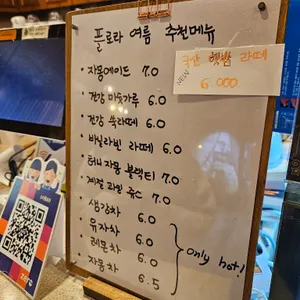 플로라 여름 추천메뉴
· 자몽에이드 7.0
· 건강 미숫가루 6.0
· 건강 쑥라떼 6.0
· 바닐라빈 라떼 6.0
· 허니 자몽 블랙티 7.0
· 계절 과일 쥬스 7.0
· 생강차 6.0
· 유자차 6.0
· 레몬차 6.0
· 자몽차 6.5
only hot!
NEW
국산 햇밤 라떼
6.000